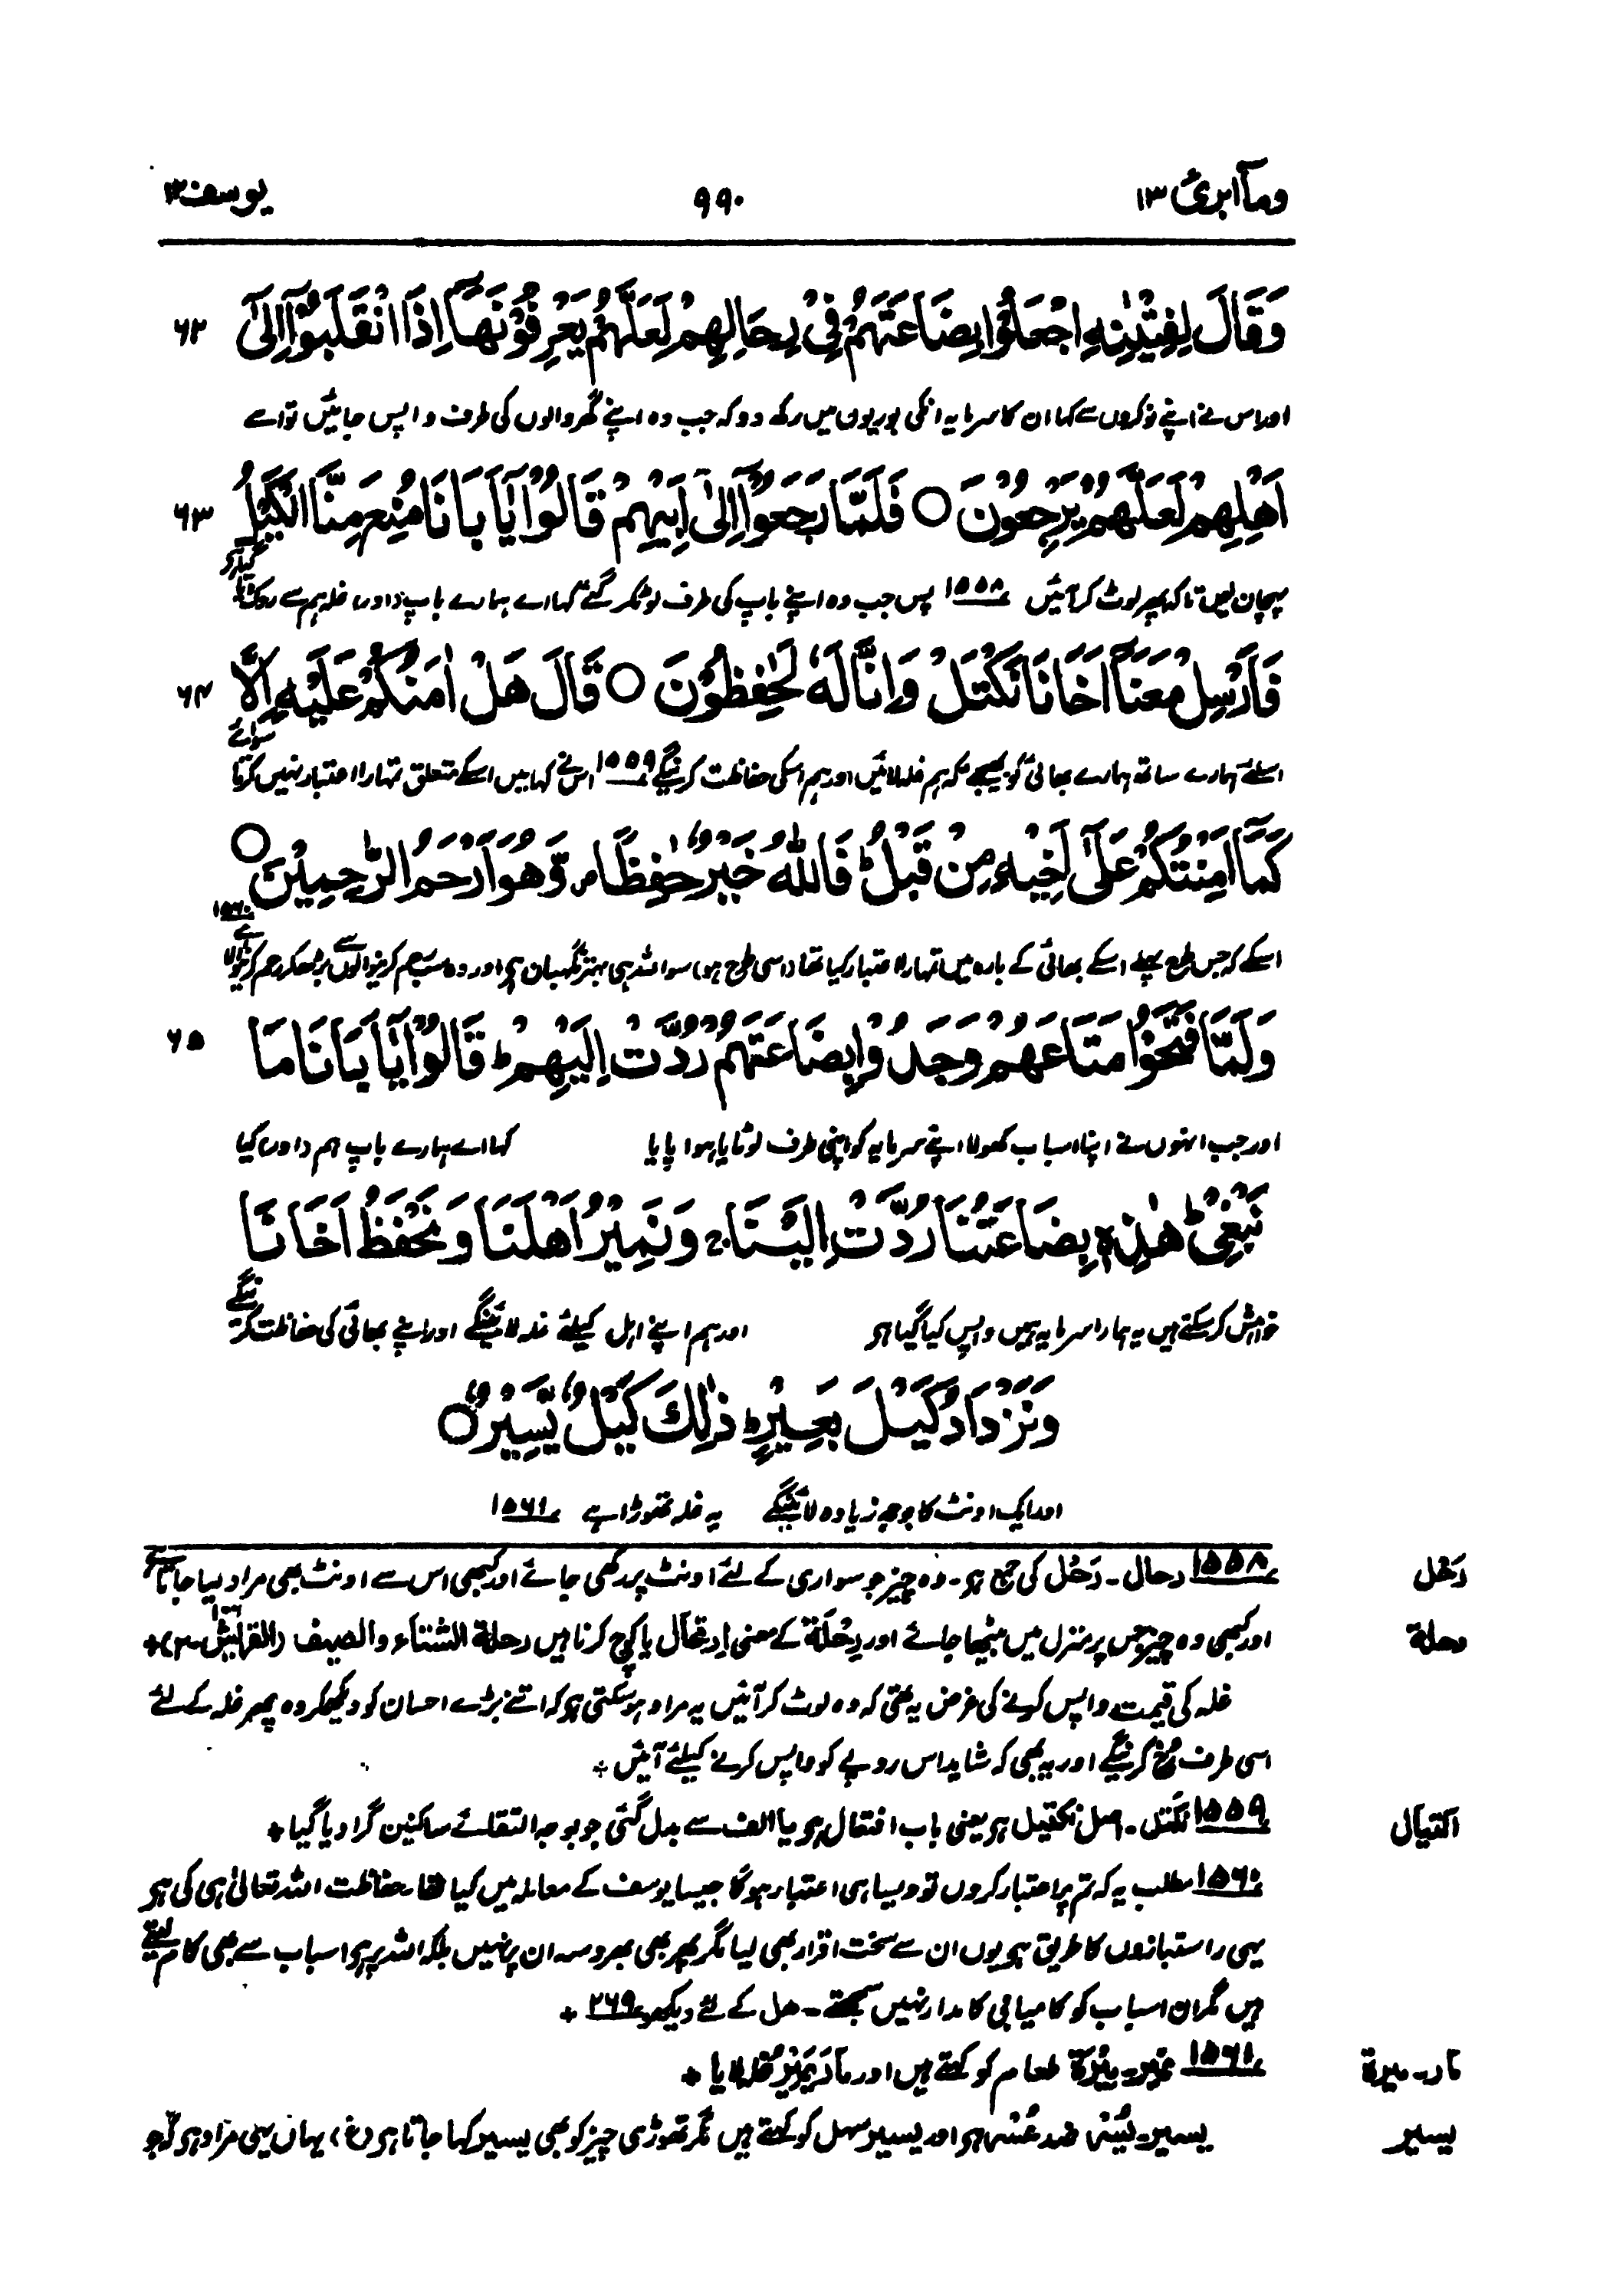 ومآ ابرئ ١٣
٩٩٠
یوسف ١٢
وَقَالَ لِفِتْيٰنِهِ اجْعَلُوْا بِضَاعَتَهُمْ فِيْ رِحَالِهِمْ لَعَلَّهُمْ يَعْرِفُوْنَهَآ اِذَا انْقَلَبُوْٓا اِلٰٓى
٦٢
اور اس نے اپنے نوکروں سے کہا ان کا سرمایہ انکی بوریوں میں رکھ دو کہ جب وہ اپنے گھر والوں کی طرف واپس جائیں تو اسے
اَهْلِهِمْ لَعَلَّهُمْ يَرْجِعُوْنَ ○ فَلَمَّا رَجَعُوْٓا اِلٰٓى اَبِيْهِمْ قَالُوْا يٰٓاَبَانَا مُنِعَ مِنَّا الْكَيْلُ
٦٣
پہچان لیں تاکہ پھر لوٹ کر آئیں ١٥٥٨ پس جب وہ اپنے باپ کی طرف لوٹکر گئے کہا اے ہمارے باپ (اور) غلہ ہم سے روکا گیا ہے
فَاَرْسِلْ مَعَنَآ اَخَانَا نَكْتَلْ وَاِنَّا لَهٗ لَحٰفِظُوْنَ ○ قَالَ هَلْ اٰمَنُكُمْ عَلَيْهِ اِلَّا
٦٤
اسلئے ہمارے ساتھ ہمارے بھائی کو بھیجئے کہ ہم غلہ لائیں اور ہم اسکی حفاظت کرینگے ١٥٥٩ اس نے کہا میں اسکے متعلق تمہارا اعتبار نہیں کرتا سوائے
كَمَآ اَمِنْتُكُمْ عَلٰٓى اَخِيْهِ مِنْ قَبْلُ ؕ فَاللّٰهُ خَيْرٌ حٰفِظًا ۪ وَّهُوَ اَرْحَمُ الرّٰحِمِيْنَ ○
اسکے کہ جس طرح پہلے اسکے بھائی کے بارہ میں تمہارا اعتبار کیا تھا (اسی طرح ہو) سو اللہ ہی بہتر نگہبان ہے اور وہ سب رحم کرنیوالوں سے بڑھکر رحم کرنیوالا ہے ١٥٦٠
وَلَمَّا فَتَحُوْا مَتَاعَهُمْ وَجَدُوْا بِضَاعَتَهُمْ رُدَّتْ اِلَيْهِمْ ؕ قَالُوْا يٰٓاَبَانَا مَا
٦٥
اور جب انہوں نے اپنا اسباب کھولا اپنے سرمایہ کو اپنی طرف لوٹایا ہوا پایا کہا اے ہمارے باپ ہم (اور) کیا
نَبْغِيْ ؕ هٰذِهٖ بِضَاعَتُنَا رُدَّتْ اِلَيْنَا ۚ وَنَمِيْرُ اَهْلَنَا وَنَحْفَظُ اَخَانَا
خواہش کر سکتے ہیں یہ ہمارا سرمایہ ہمیں واپس کیا گیا ہے اور ہم اپنے اہل کیلئے غلہ لائینگے اور اپنے بھائی کی حفاظت کرینگے
وَنَزْدَادُ كَيْلَ بَعِيْرٍ ؕ ذٰلِكَ كَيْلٌ يَّسِيْرٌ ○
اور ایک اونٹ کا بوجھ زیادہ لائینگے یہ غلہ تھوڑا ہے ١٥٦١
رَحْل
١٥٥٨ رحال۔ رَحْل کی جمع ہے۔ وہ چیز جو سواری کے لئے اونٹ پر رکھی جائے اور کبھی اس سے اونٹ بھی مراد لیا جاتا ہے
رحلة
اور کبھی وہ چیز جس پر منزل میں بیٹھا جائے اور رِحْلَة کے معنی اِرتحال یا کوچ کرنا ہیں رحلة الشتاء والصیف (القرایش ١٠٦-٢) +
غلہ کی قیمت واپس کرنے کی غرض یہ تھی کہ وہ لوٹ کر آئیں یہ مراد ہو سکتی ہے کہ اتنے بڑے احسان کو دیکھکر وہ پھر غلہ کے لئے
اسی طرف رُخ کرینگے اور یہ بھی کہ شاید اس روپے کو واپس کرنے کیلئے آئیں +
اکتیال
١٥٥٩ نکتل۔ اصل نکتیل ہے یعنی باب افتعال ہے یا الف سے بدل گئی جو بوجہ التقائے ساکنین گرا دیا گیا +
١٥٦٠ مطلب یہ کہ تم پر اعتبار کروں تو ویسا ہی اعتبار ہو گا جیسا یوسف کے معاملہ میں کیا تھا حفاظت اللہ تعالیٰ ہی کی ہے
یہی راستبازوں کا طریق ہے یوں ان سے سخت اقرار بھی لیا مگر پھر بھی بھروسہ ان پر نہیں بلکہ اللہ پر ہے اسباب سے بھی کام لیتے
ہیں مگر ان اسباب کو کامیابی کا مدار نہیں سمجھتے۔ ھل کے لئے دیکھو ٢٦٩ +
مار۔ میرة
١٥٦١ نمیر۔ مِیْرَة طعام کو کہتے ہیں اور مَارَ یَمِیْرُ غلہ لایا +
یسیر
یسیر۔ یُسْر ضد عُسْر ہے اور یسیر سہل کو کہتے ہیں مگر تھوڑی چیز کو بھی یسیر کہا جاتا ہے (غ) یہاں یہی مراد ہے کہ جو